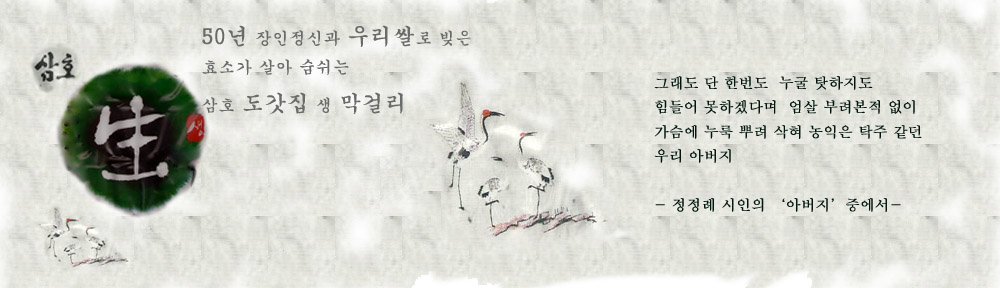 삼호
生
생
50년 장인정신과 우리쌀로 빚은
효소가 살아 숨쉬는
삼호 도갓집 생 막걸리
그래도 단 한번도 누굴 탓하지도
힘들어 못하겠다며 엄살 부려본적 없이
가슴에 누룩 뿌려 삭혀 농익은 탁주 같던
우리 아버지
- 정정례 시인의 ‘아버지’ 중에서-